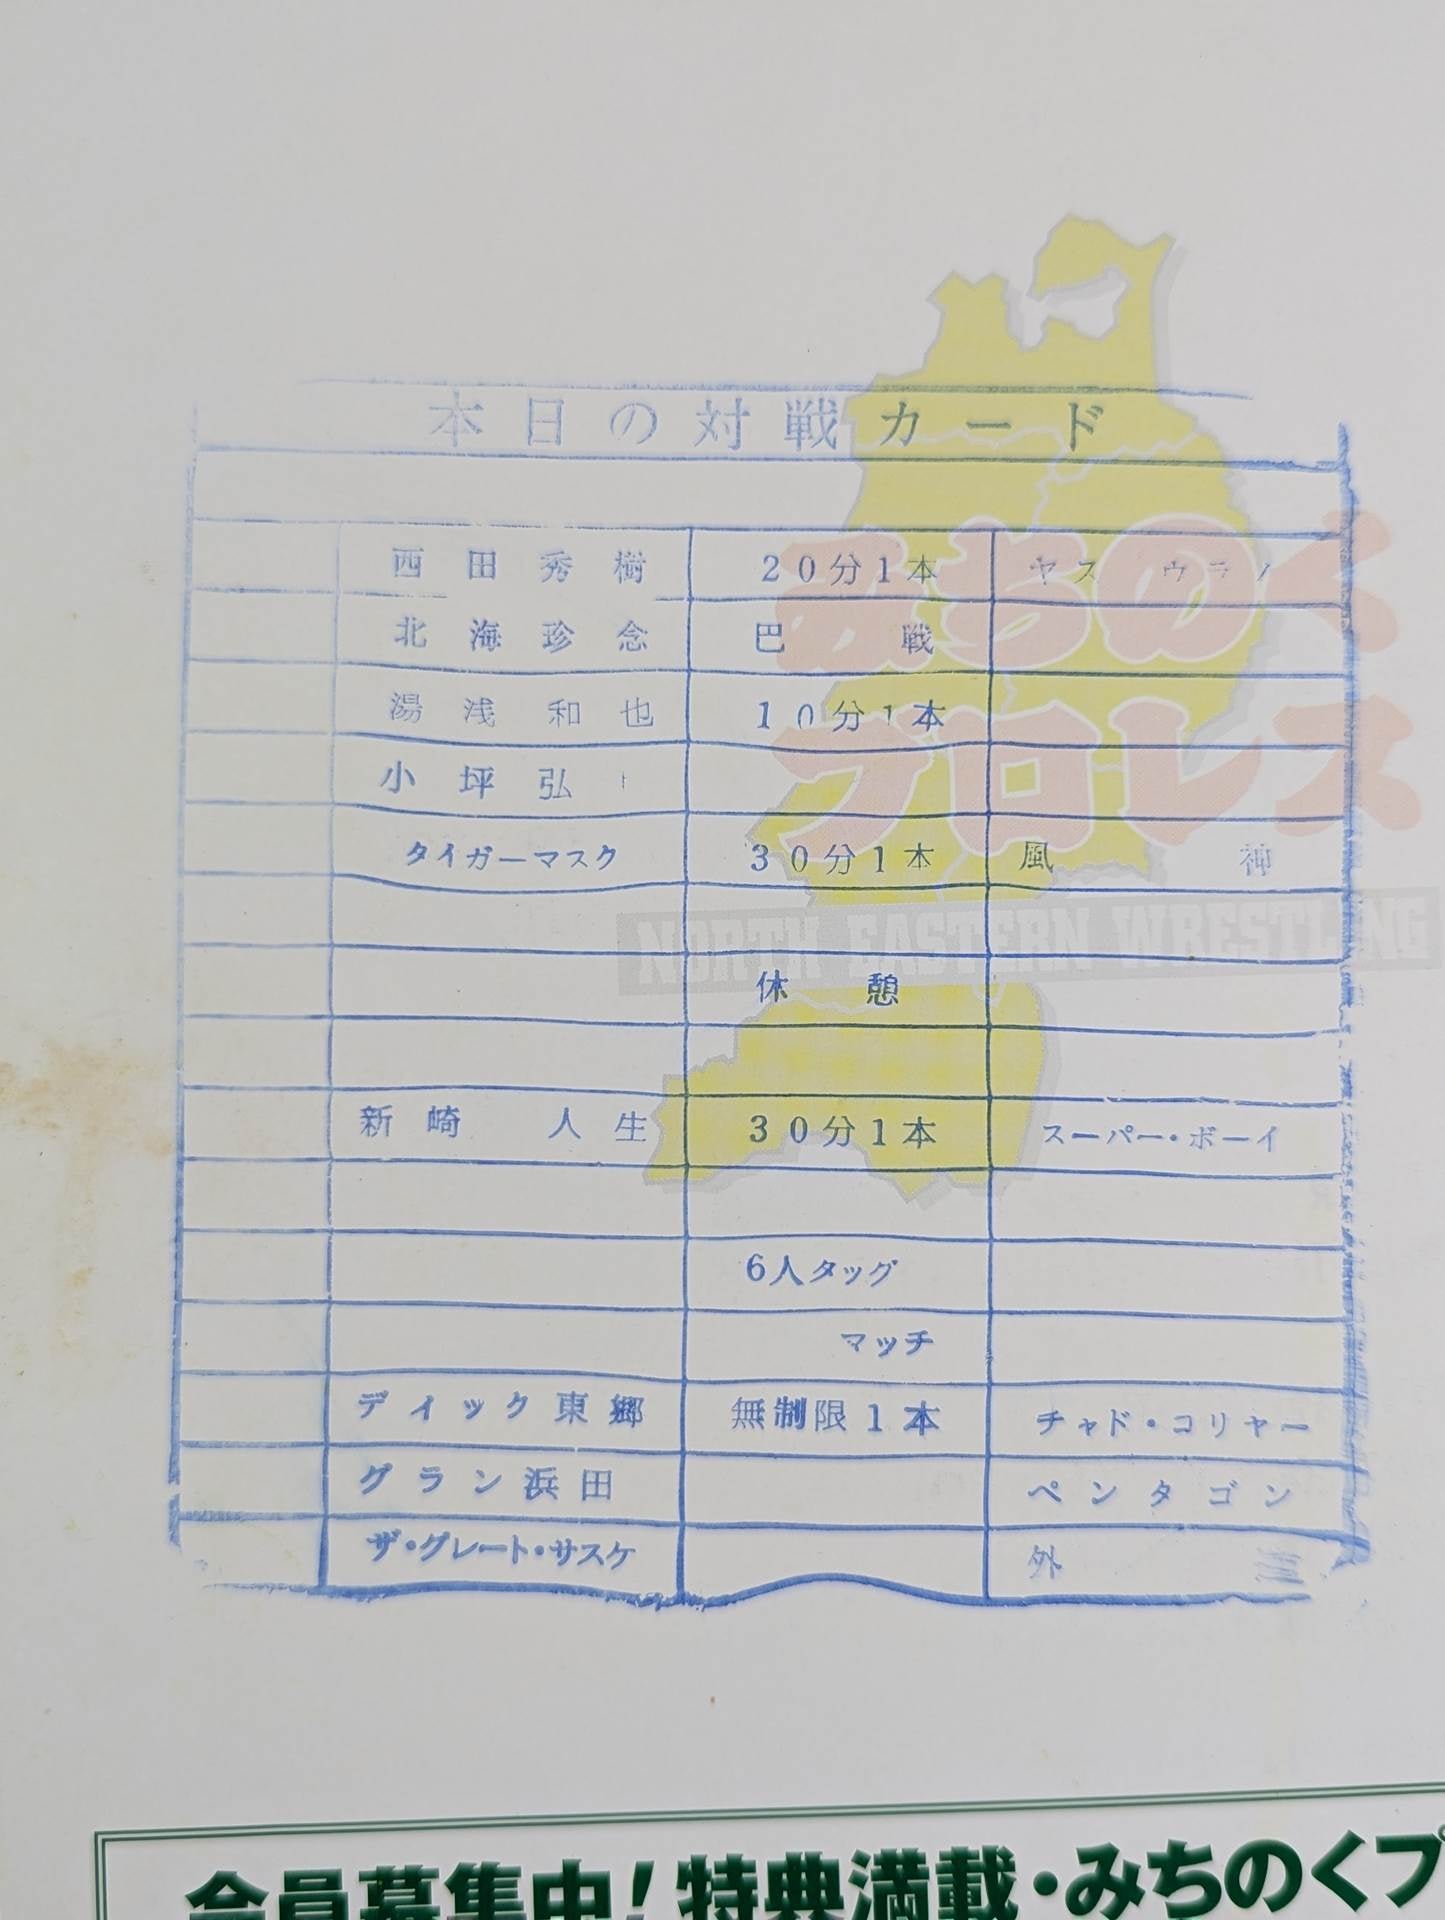 本日の対戦カード
西田秀樹 20分1本 ヤス ウラノ
北海珍念 巴 戦
湯浅和也 10分1本
小坪弘
タイガーマスク 30分1本 風 神
休 憩
新崎 人生 30分1本 スーパー・ボーイ
6人タッグ
マッチ
ディック東郷 無制限1本 チャド・コリヤー
グラン浜田 ペンタゴン
ザ・グレート・サスケ 外
みちのく
プロレス
NORTH EASTERN WRESTLING
会員募集中!特典満載・みちのくプ